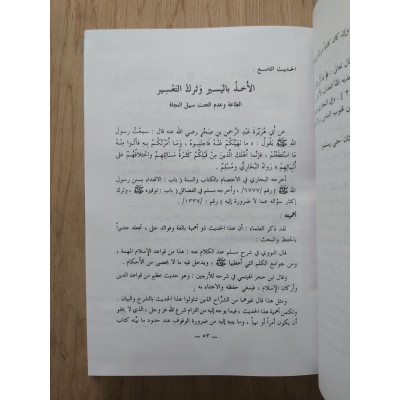 الحديث التاسع :
الأخذُ باليَسير وَتركُ التعْسِير
الطاعة وعدم التعنت سبيل النجاة
عن أبي هُرَيْرَةَ عَبْدِ الرَّحمنِ بنِ صَخْرٍ رضي الله عنه قال : سمعْتُ رسول
الله ﷺ يَقُولُ : « مَا نَهَيْتُكُمْ عَنْهُ فَاجْتَنِبُوهُ ، وَمَا أَمَرْتُكُمْ بِهِ فَأْتُوا مِنْهُ مَا
اسْتَطَعْتُمْ ، فَإِنَّمَا أَهْلَكَ الَّذِينَ مِنْ قَبْلِكُمْ كَثْرَةُ مَسَائِلِهِمْ وَاخْتِلَافُهُمْ عَلَى
أَنْبِيَائِهِمْ » رَوَاهُ الْبُخَارِيُّ وَمُسْلِمٌ .
أخرجه البخاري في الاعتصام بالكتاب والسنة ( باب : الاقتداء بسنن رسول
الله ﷺ ) رقم /٦٧٧٧/ ، وأخرجه مسلم في الفضائل ( باب : توقيره ﷺ ، وترك
إكثار سؤاله عما لا ضرورة إليه ) رقم : /١٣٣٧/ .
أهميته :
لقد ذكر العلماء : أن هذا الحديث ذو أهمية بالغة وفوائد جلى ، تجعله جديراً
بالحفظ والبحث :
قال النووي في شرح مسلم عند الكلام عنه : هذا من قواعد الإسلام المهمة ،
ومن جوامع الكلم التي أعطيها ﷺ ، ويدخل فيه ما لا يحصى من الأحكام .
وقال ابن حجر الهيتمي في شرحه للأربعين : وهو حديث عظيم من قواعد الدين
وأركان الإسلام ، فينبغي حفظه والاعتناء به .
ومثل هذا قال غيرهما من الشُّراح الذين تناولوا هذا الحديث بالشرح والبيان .
وتكمن أهمية هذا الحديث : فيما يوجه إليه من التزام شرع الله عز وجل ، الذي لا يخلو
أن يكون أمراً أو نهياً ، وما ينبه إليه من ضرورة الوقوف عند حدود ما بيَّنه كتاب
— ٥٣ —